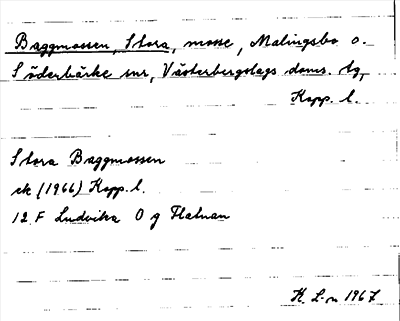 Baggmossen, Stora, mosse, Malingsbo o.
Söderbärke snr, Västerbergslags doms. tg,
Kopp. l.
Stora Baggmossen
ek (1966) Kopp. l.
12 F Ludvika O g Flatnan
K. L-n 1967